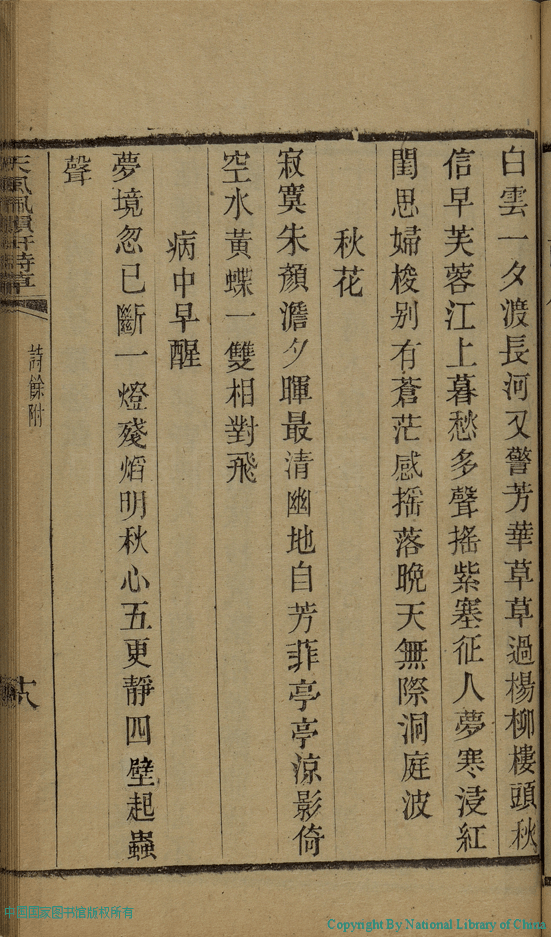 白雲一夕渡長河又警芳華草草過楊柳樓頭秋
信早芙蓉江上暮愁多聲搖紫塞征人夢寒浸紅
閨思婦梭别有蒼茫感摇落晚天無際洞庭波
秋花
寂寞朱顏澹夕暉最清幽地自芳菲亭亭涼影倚
空水黃蝶一雙相對飛
病中早醒
夢境忽已斷一燈殘焰明秋心五更靜四壁起蟲
聲
詩餘附
中国国家图书馆版权所有
Copyright By National Library of China